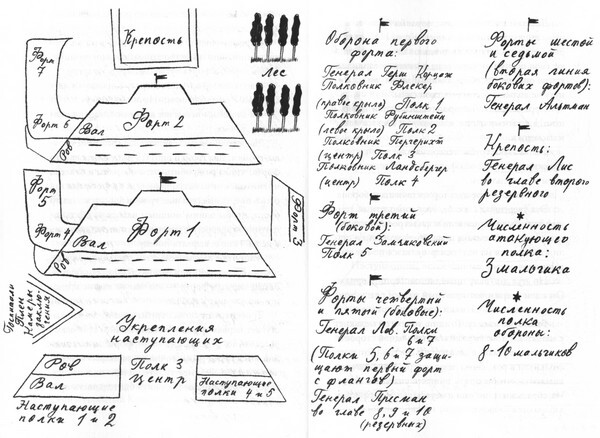 Крепость
Форт
7
Лес
Форт 6
Вал
Форт 2
Ров
Форт
5
Форт 4
Вал
Форт 1
Ров
Форт 3
Госпитали
Плен
Камеры
заклю-
чения
Укрепления
наступающих
Ров
Вал
Полк 3
Центр
Наступающие
полки 4 и 5
Наступающие
полки 1 и 2
Оборона первого
форта:
Генерал Герш
Полковник Флекер
(правое крыло) Полк 1
Полковник Рубинштейн
(левое крыло) Полк 2
Полковник
(центр) Полк 3
Полковник Ландсбергер
(центр) Полк 4
Форт третий
(боковой):
Генерал Замчиковский
Полк 5
Форты четвертый
и пятый (боковые):
Генерал Лов. Полки
6 и 7
(Полки 5, 6 и 7 защи-
щают первый форт
с флангов)
Генерал Присман
во главе 8, 9 и 10
(резервных)
Форты шестой
и седьмой
(вторая линия
боковых фортов):
Генерал Альтман
Крепость:
Генерал Лис
во главе второго
резервного
Численность
атакующего
полка:
3 мальчика
Численность
полка
обороны:
8-10 мальчиков